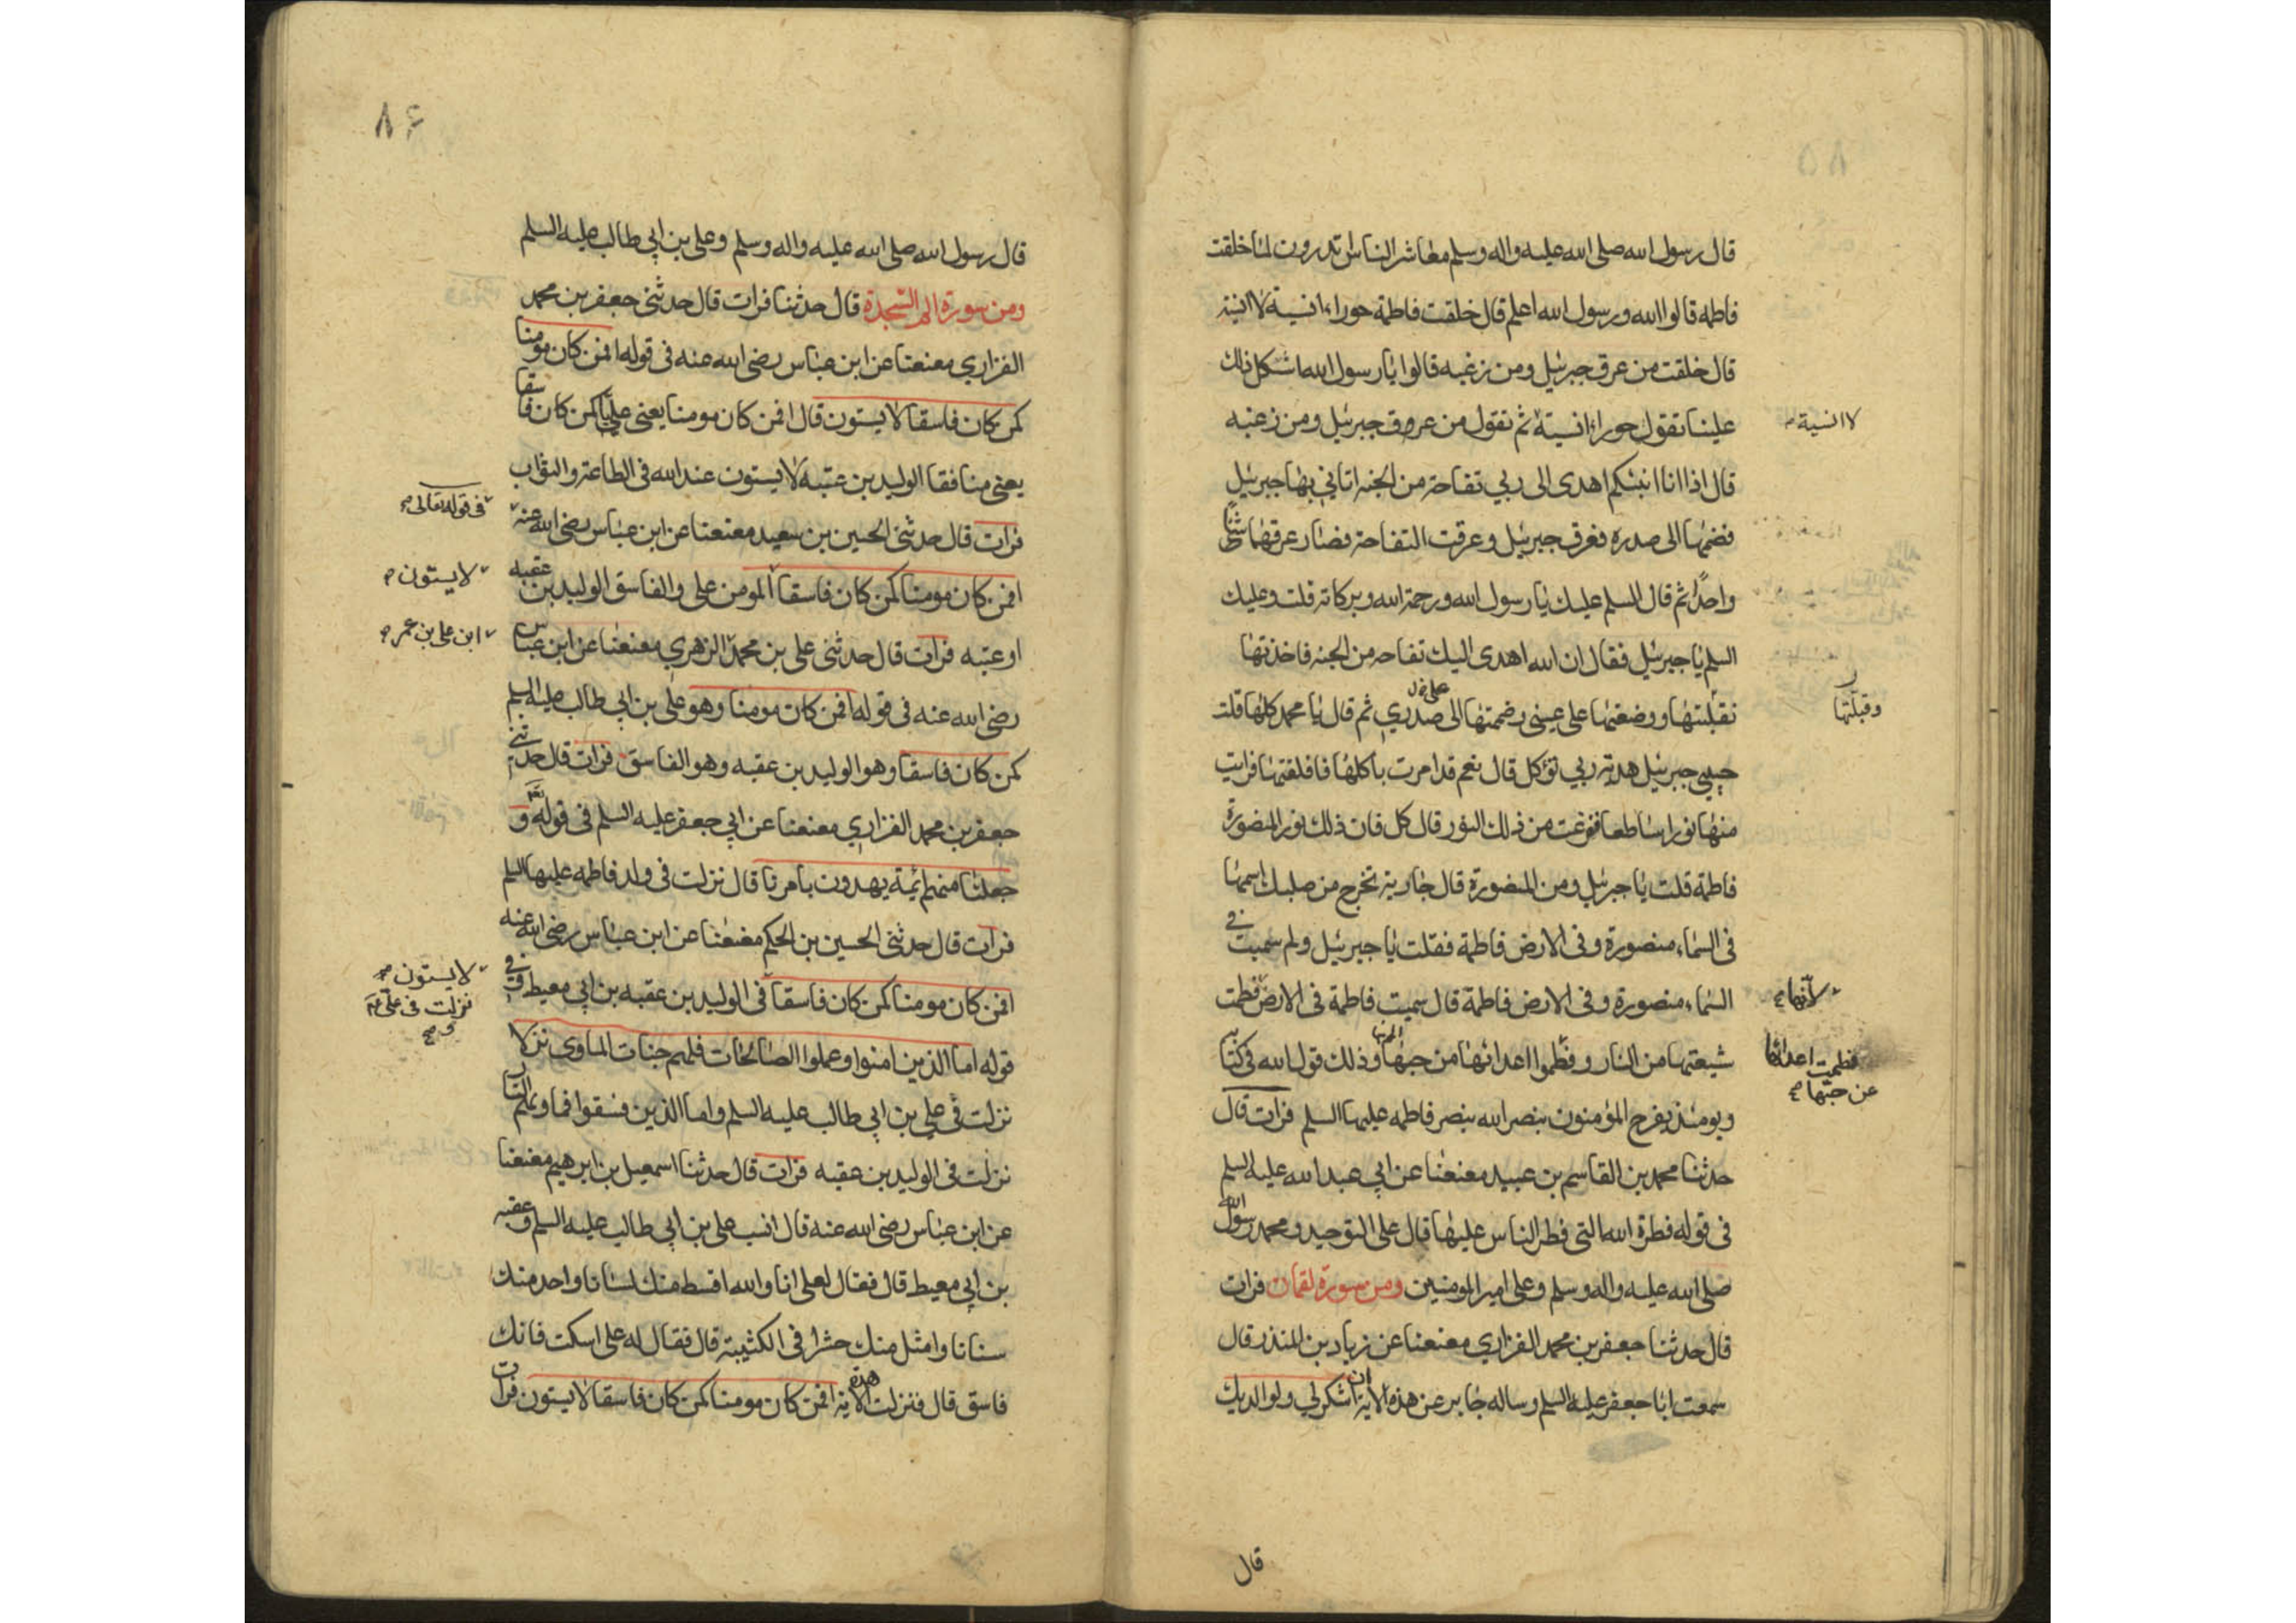 قال رسول الله صلى الله عليه واله وسلم معاشر الناس تدرون لما خلقت
فاطمة قالوا الله ورسول الله اعلم قال خلقت فاطمة حوراء انسية لا انية
قال خلقت من عرق جبرئيل ومن زغبه قالوا يا رسول الله اشتكل ذلك
علينا تقول حوراء انسية ثم تقول من عرق جبرئيل ومن زغبه
لا انسية
قال اذا انا انبئكم اهدى الى ربي تفاحة من الجنة اتاني بها جبرئيل
فضمها الى صدره فعرق جبرئيل وعرقت التفاحة فصار عرقهما شيئا
واحدا ثم قال السلم عليك يا رسول الله ورحمة الله وبركاته قلت وعليك
السلم يا جبرئيل فقال ان الله اهدى اليك تفاحه من الجنه فاخذتها
فقبلتها ووضعتها على عيني وضممتها الى صدري ثم قال يا محمد كلها قلت
وقبلتها
حبيبي جبرئيل هدية ربي تؤكل قال نعم قد امرت باكلها فافلقتها فرايت
منها نورا ساطعا ففزعت من ذلك النور قال كل فان ذلك نور المنصورة
فاطمة قلت يا جبرئيل ومن المنصورة قال جارية تخرج من صلبك اسمها
في السماء منصورة وفي الارض فاطمة فقلت يا جبرئيل ولم سميت في
السماء منصورة وفي الارض فاطمة قال سميت فاطمة في الارض فطمت
لانها
شيعتها من النار وفطموا اعدائها من حبها وذلك قول الله في كتابه
فطمت اعدائها
عن حبها
ويومئذ يفرح المؤمنون بنصر الله بنصر فاطمه عليها السلم فرات قال
حدثنا محمد بن القاسم بن عبيد معنعنا عن ابي عبد الله عليه السلم
في قوله فطرة الله التي فطر الناس عليها قال على التوحيد ومحمد رسول الله
صلى الله عليه واله وسلم وعلى امير المومنين ومن سورة لقمان فرات
قال حدثنا جعفر بن محمد الفزاري معنعنا عن زياد بن المنذر قال
سمعت ابا جعفر عليه السلم وساله جابر عن هذه الاية ان اشكر لي ولوالديك
قال
٨۶
قال رسول الله صلى الله عليه واله وسلم وعلى بن ابي طالب عليه السلم
ومن سورة الم السجدة قال حدثنا فرات قال حدثني جعفر بن محمد
الفزاري معنعنا عن ابن عباس رضى الله عنه في قوله افمن كان مومنا
كمن كان فاسقا لا يستون قال افمن كان مومنا يعنى عليا كمن كان فاسقا
يعنى منافقا الوليد بن عتبه لا يستون عند الله في الطاعة والثواب
فرات قال حدثني الحسين بن سعيد معنعنا عن ابن عباس رضى الله عنه
في قوله تعالى
افمن كان مومنا كمن كان فاسقا المومن على والفاسق الوليد بن عقبه
لا يستون
او عتبه فرات قال حدثني على بن محمد الزهري معنعنا عن ابن عباس
ابن على بن عمر
رضى الله عنه في قوله افمن كان مومنا وهو على بن ابي طالب عليه السلم
كمن كان فاسقا وهو الوليد بن عقبه وهو الفاسق فرات قال حدثني
جعفر بن محمد الفزاري معنعنا عن ابي جعفر عليه السلم في قوله و
جعلنا منهم ائمة يهدون بامرنا قال نزلت في ولد فاطمه عليها السلم
فرات قال حدثني الحسين بن الحكم معنعنا عن ابن عباس رضى الله عنه
افمن كان مومنا كمن كان فاسقا في الوليد بن عقبه بن ابي معيط وفي
لا يستون
نزلت في على
و
قوله اما الذين امنوا وعملوا الصالحات فلهم جنات الماوى نزلا
نزلت في على بن ابي طالب عليه السلم واما الذين فسقوا فماويهم النار
نزلت في الوليد بن عقبه فرات قال حدثنا اسمعيل بن ابرهيم معنعنا
عن ابن عباس رضى الله عنه قال انسب على بن ابي طالب عليه السلم وعقبه
بن ابي معيط قال فقال لعلى انا والله اقسط منك لسانا واحد منك
سنانا وامثل منك حشرا في الكثيبة قال فقال له على اسكت فانك
فاسق قال فنزلت هذه الاية افمن كان مومنا كمن كان فاسقا لا يستون فرات